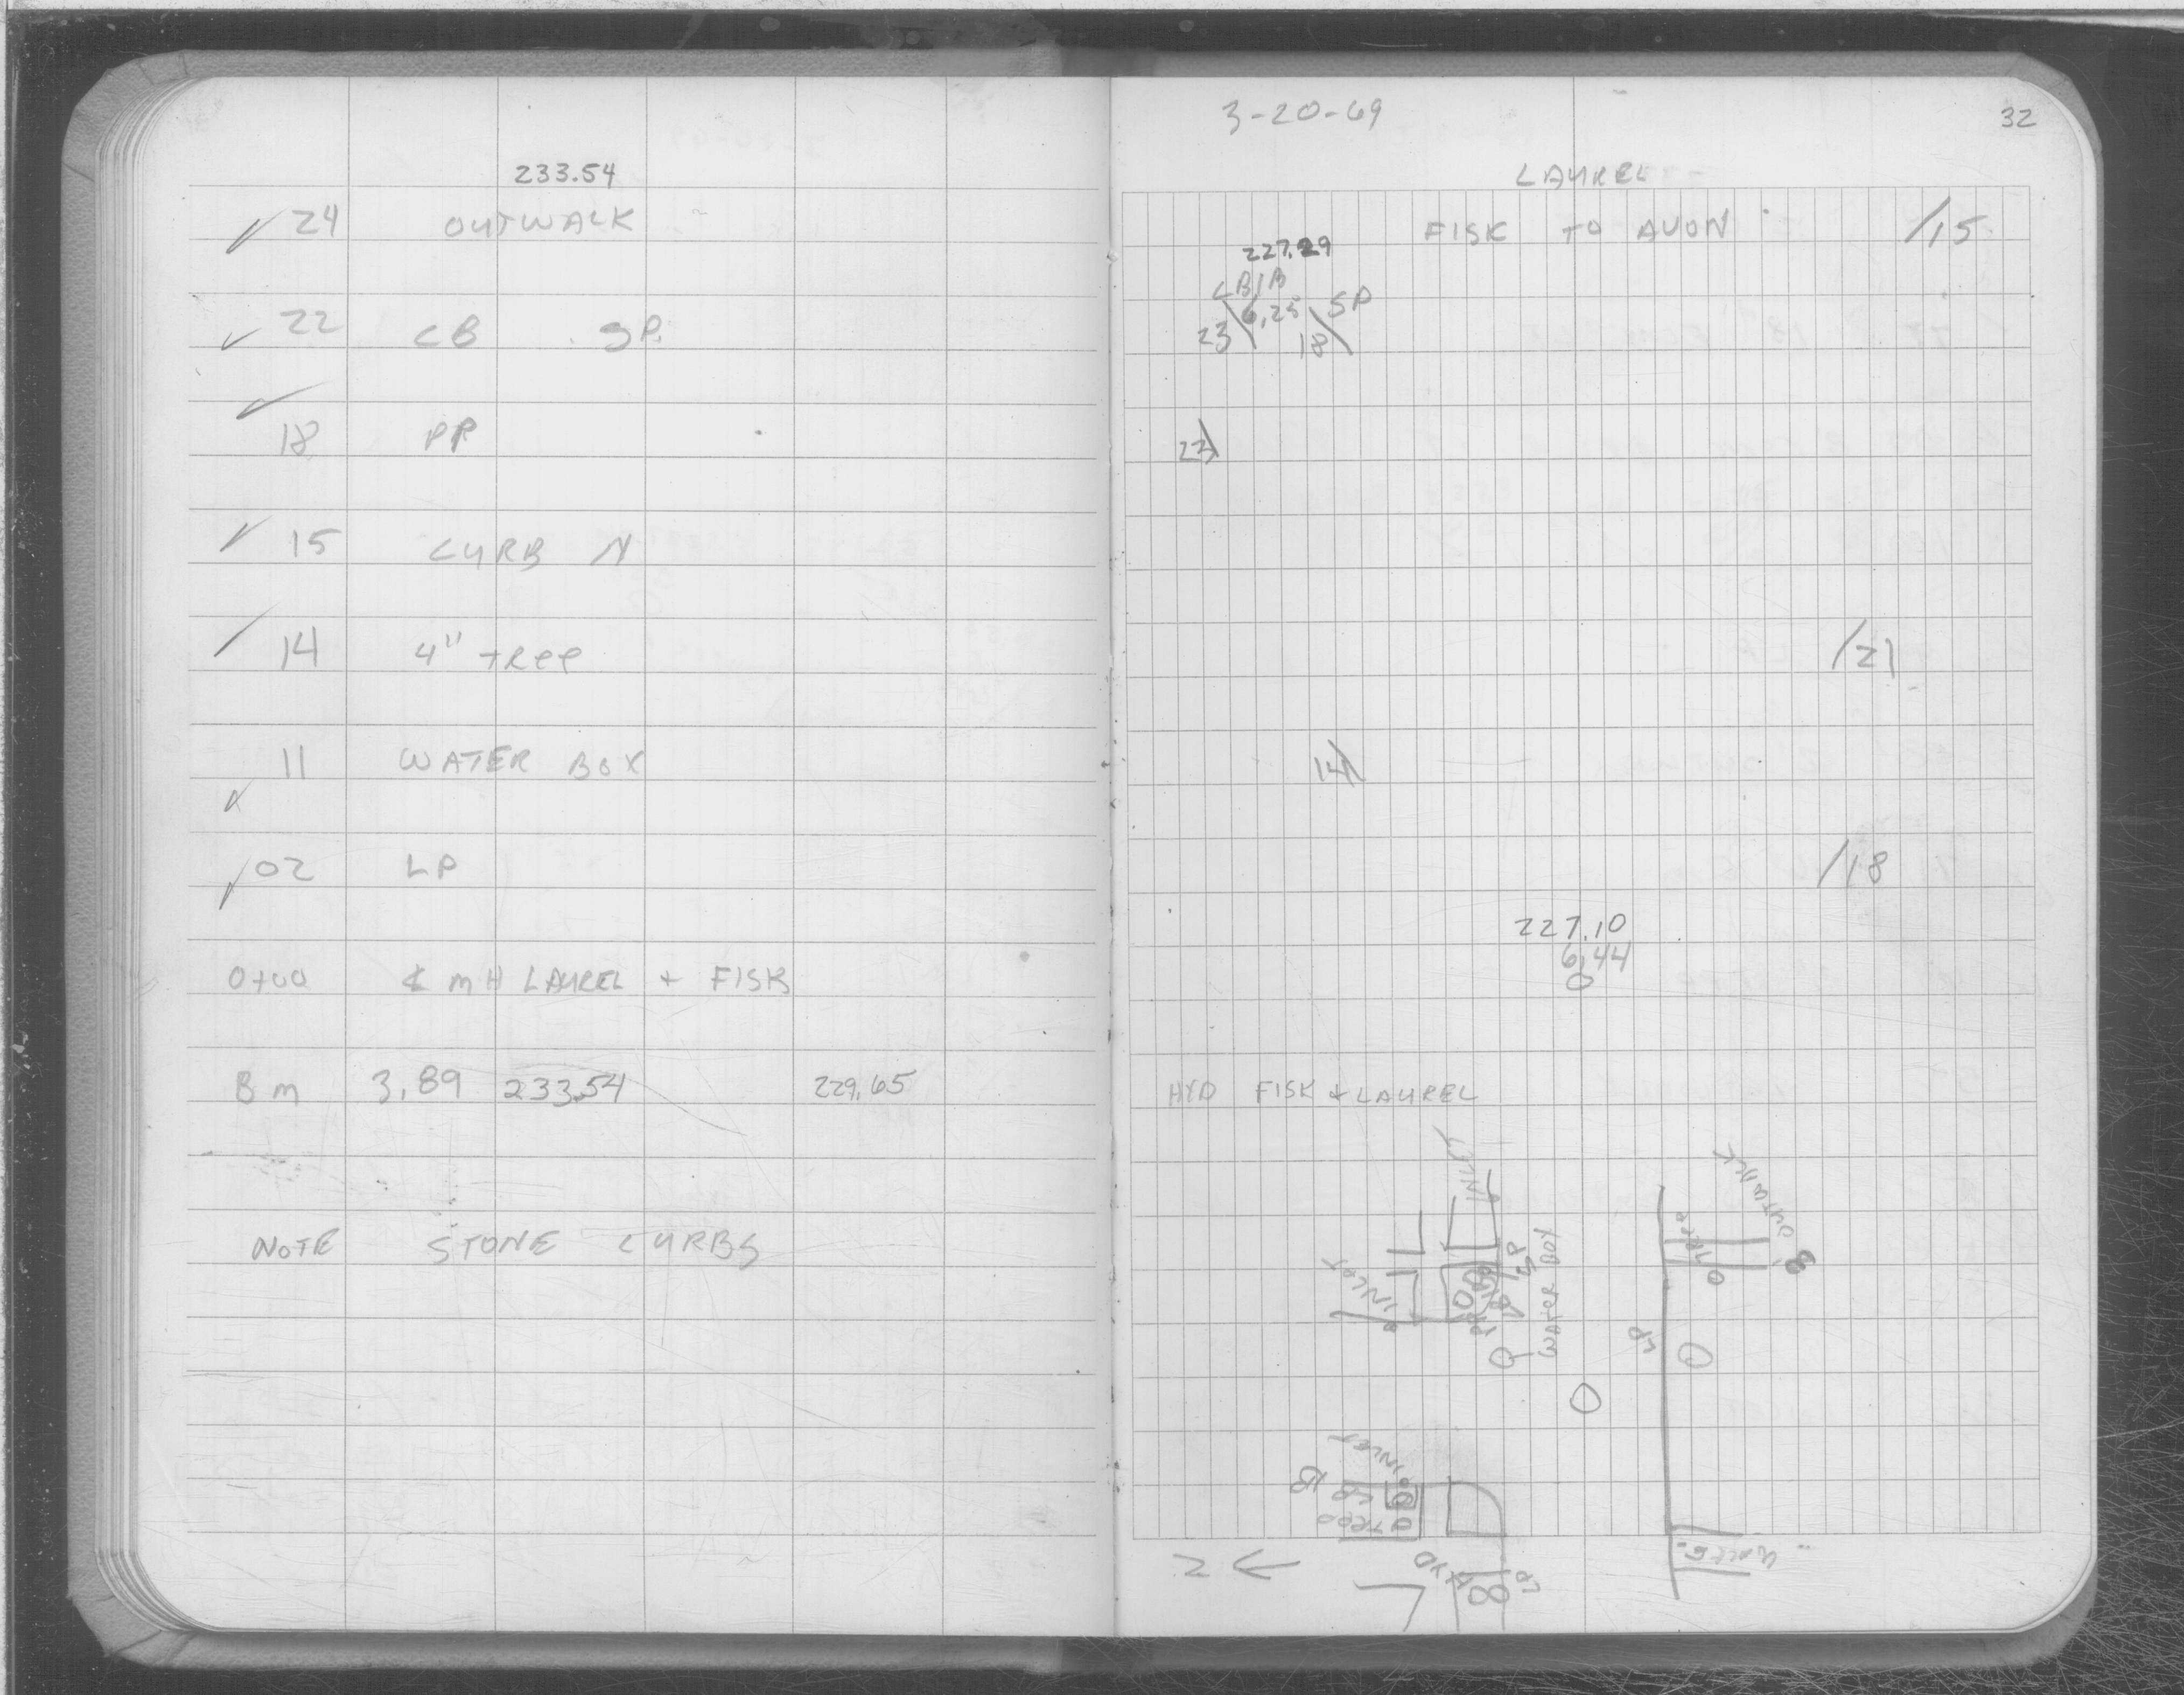 233.54
✓ 24 OUTWALK
✓ 22 CB SP
✓ 18 PP
✓ 15 CURB N
✓ 14 4" TREE
✓ 11 WATER BOX
✓ 02 LP
0+00 ℄ MH LAUREL + FISK
BM 3.89 233.54 229.65
NOTE STONE CURBS
3-20-69
32
LAUREL
FISK TO AVON /15
227.29
CB/B
6.25 SP
23\ 18\
22\
/21
14\
/18
227.10
6.44
0
HYD FISK + LAUREL
INLET
OUTWALK
TREE
INLET
SP
WATER BOX
LP
INLET
LP
TREE
N
HYD
LP